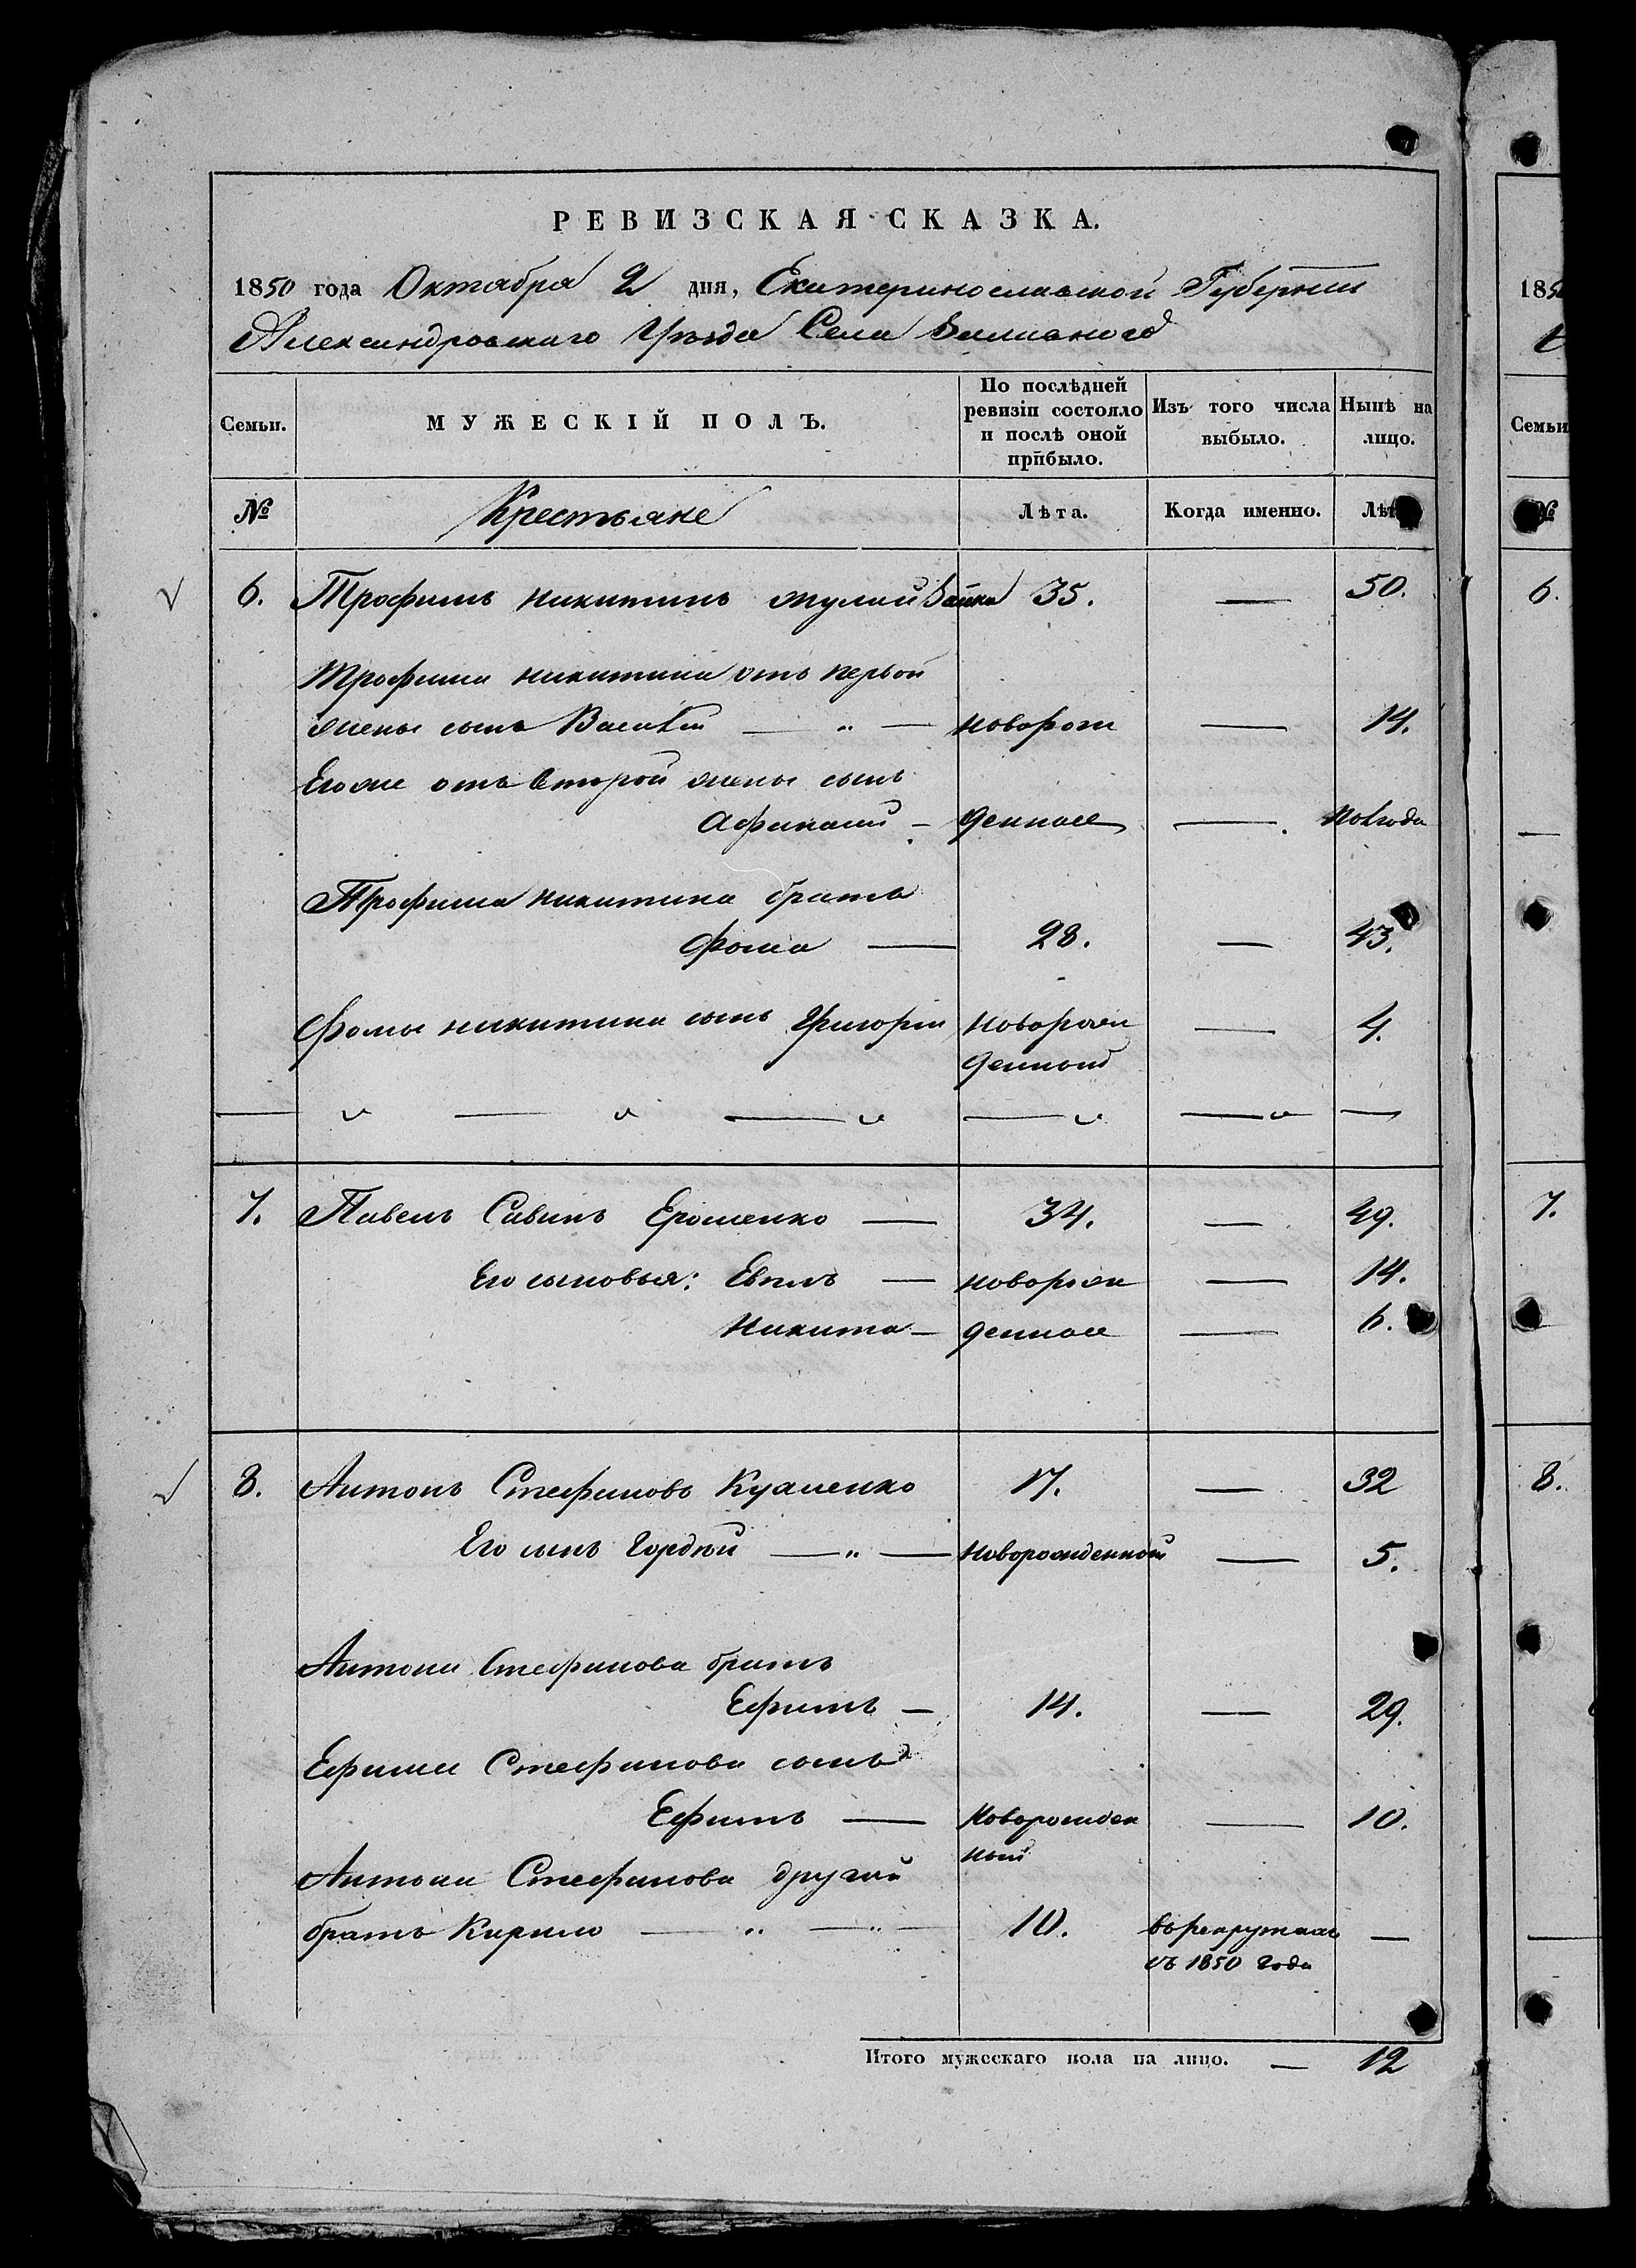 РЕВИЗСКАЯ СКАЗКА.
1850 года Октября 2 дня, Екатеринославской Губернии
Александровскаго Уѣзда Села
Семьи.
МУЖЕСКІЙ ПОЛЪ.
По послѣдней ревизіи состояло и послѣ оной прибыло.
Изъ того числа выбыло.
Нынѣ на лицо.
№ Крестьяне Лѣта. Когда именно. Лѣт
6. Трофимъ Никитинъ 35. — 50.
Трофима Никитина отъ первой
жены сынъ Василій — " — новорож — 14.
Его же отъ второй жены сынъ
Афанасій — денные — полгода
Трофима Никитина братъ
Фома — 28. — 43.
Фомы Никитина сынъ Григорій новорож — 4.
денный
7. Павелъ Савинъ Ерошенко — 34. — 49.
Его сыновья: Евплъ — новорож — 14.
Никита — денные — 6.
8. Антонъ Стефановъ 17. — 32
Его сынъ Гордѣй — " — новорожденный — 5.
Антона Стефанова братъ
Ефимъ — 14. — 29.
Ефима Стефанова сынъ
Ефимъ — новорожден — 10.
ный
Антона Стефанова другой
братъ Кирило — " — " — 10. въ рекрутахъ —
съ 1850 года
Итого мужескаго пола на лицо. — 12
185
Семьи
№
6.
7.
8.